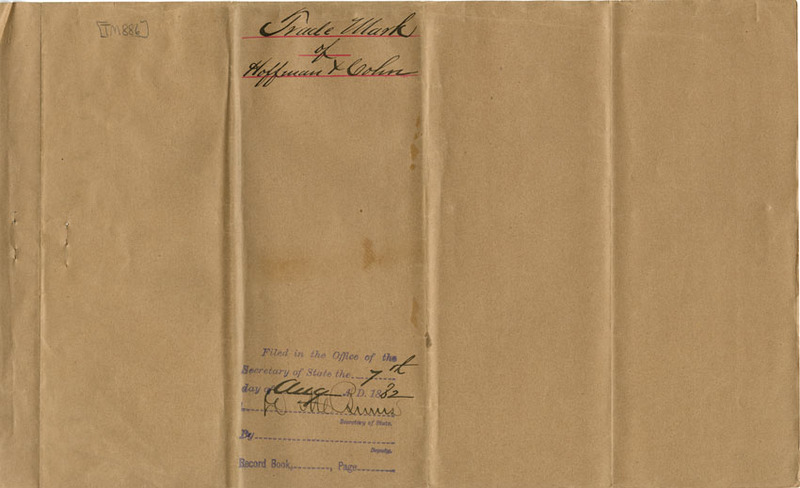 [TM886]
Trade Mark
of
Hoffman & Cohn
Filed in the Office of the
Secretary of State the 7th
day of Aug A.D. 1882
Secretary of State.
By
Deputy.
Record Book, , Page